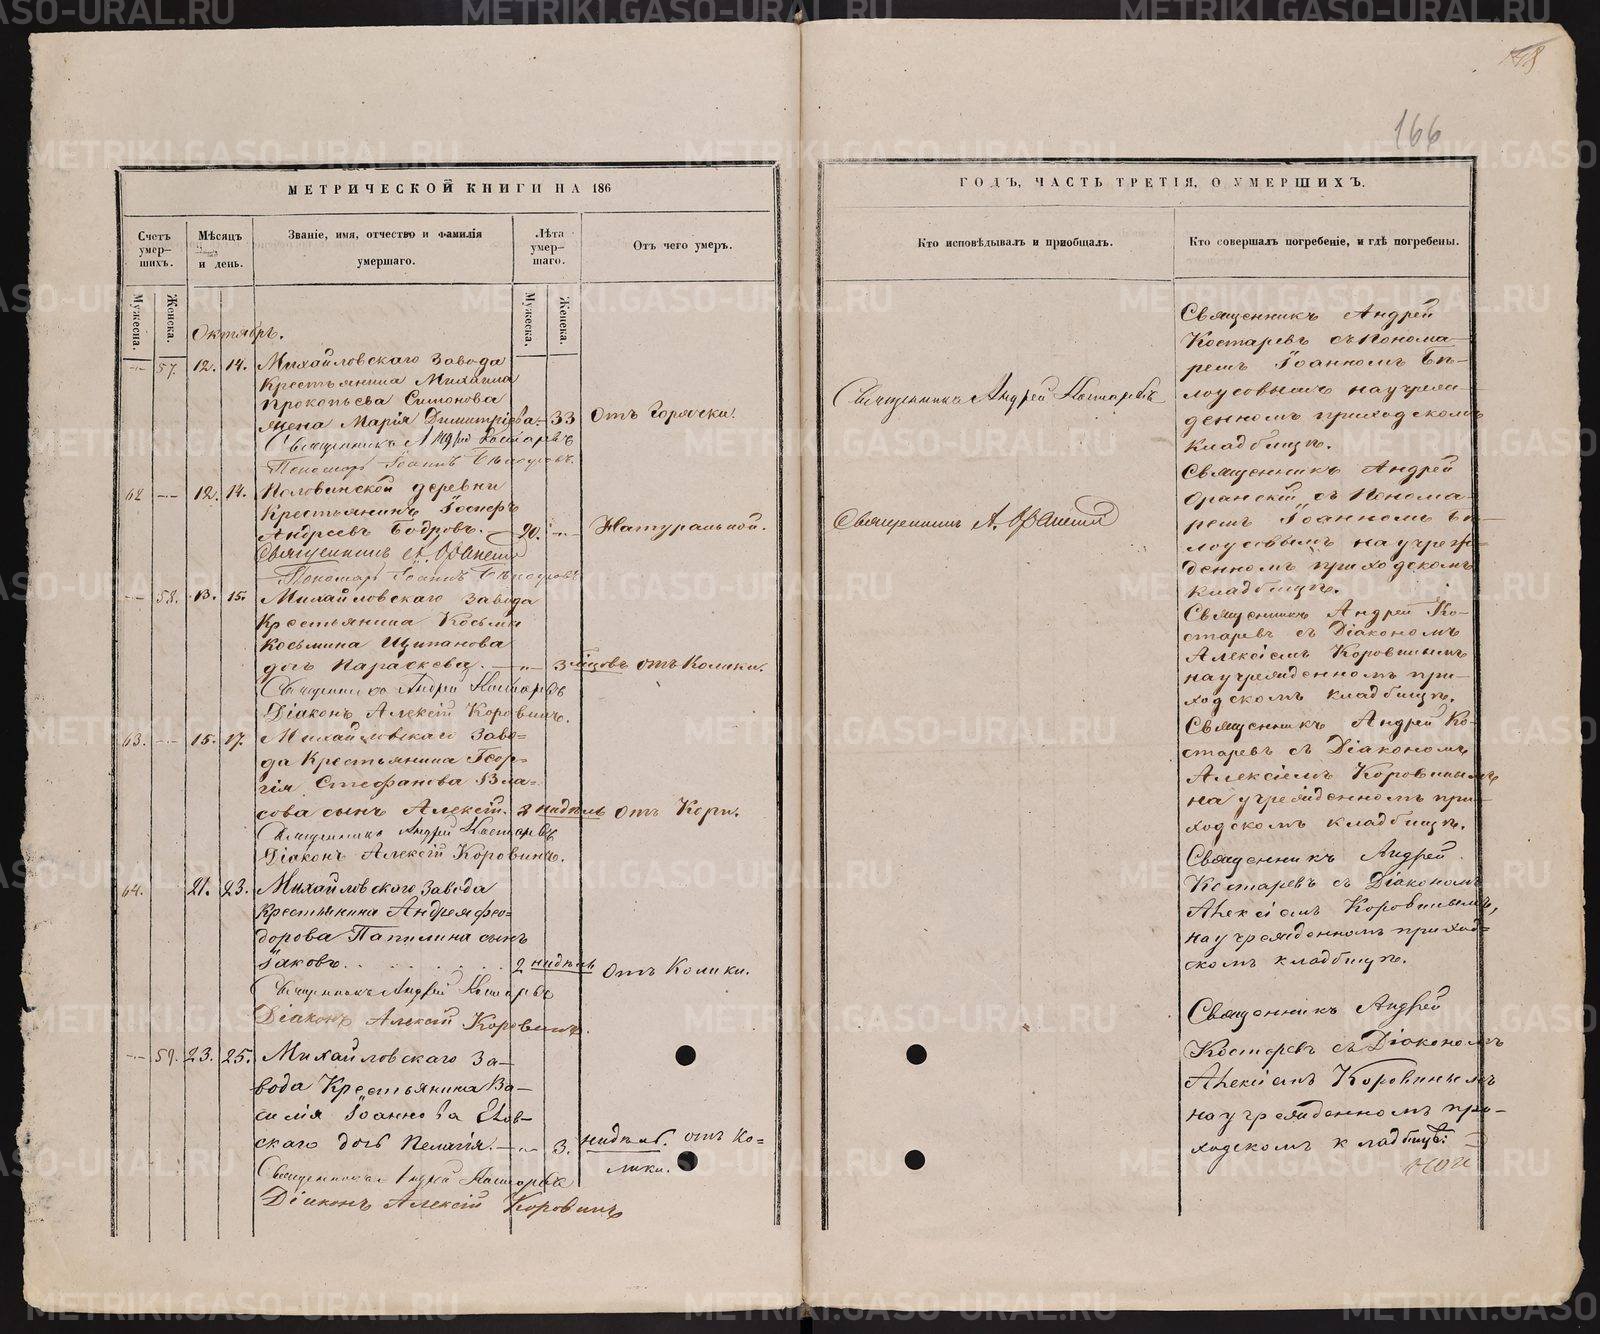 МЕТРИЧЕСКОЙ КНИГИ НА 186
Счетъ умер-шихъ.
Мужеска.
Женска.
Мѣсяцъ и день.
Званіе, имя, отчество и фамилія умершаго.
Лѣта умер-шаго.
Мужеска.
Женска.
Отъ чего умеръ.
Октябрь.
57. 12. 14. Михайловскаго завода
Крестьянина Михаила
Прокопьева Симонова
жена Марія Димитріева — 33 Отъ Горячки.
Священникъ Андрей Костаревъ
Пономарь Іоаннъ Бѣлоусовъ.
62 — 12. 14. Половинской деревни
Крестьянинъ
Андреевъ Бодровъ. — 20. Натуральной.
Священникъ А.
Пономарь Іоаннъ Бѣлоусовъ
58. 13. 15. Михайловскаго завода
Крестьянина Косьмы
Косьмина Щипанова
дочь Параскева. — 3 отъ Колики.
Священникъ Андрей Костаревъ
Діаконъ Алексій Коровинъ.
63. — 15. 17. Михайловскаго Заво-
да Крестьянина Геор-
гія Стефанова Вла-
сова сынъ Алексій. 2 недѣль отъ Кори.
Священникъ Андрей Костаревъ
Діаконъ Алексій Коровинъ.
64. 21. 23. Михайловскаго завода
Крестьянина Андрея Фео-
дорова Папилина сынъ
Іаковъ. 2 недѣль Отъ Колики.
Священникъ Андрей Костаревъ
Діаконъ Алексій Коровинъ.
59. 23. 25. Михайловскаго За-
вода Крестьянина Ва-
силія Іоаннова
скаго дочь Пелагія. — 3. недѣль. отъ Ко-
лики.
Священникъ Андрей Костаревъ
Діаконъ Алексій Коровинъ
166
ГОДЪ, ЧАСТЬ ТРЕТІЯ, О УМЕРШИХЪ.
Кто исповѣдывалъ и пріобщалъ.
Кто совершалъ погребеніе, и гдѣ погребены.
Священникъ Андрей Костаревъ
Священникъ А.
Священникъ Андрей
Костаревъ съ Понома-
ремъ Іоанномъ Бѣ-
лоусовымъ на учреж-
денномъ приходскомъ
кладбищѣ.
Священникъ Андрей
съ Понома-
ремъ Іоанномъ Бѣ-
лоусовымъ на учреж-
денномъ приходскомъ
кладбищѣ.
Священникъ Андрей Ко-
старевъ съ Діакономъ
Алексіемъ Коровинымъ
на учрежденномъ при-
ходскомъ кладбищѣ.
Священникъ Андрей Ко-
старевъ съ Діакономъ
Алексіемъ Коровинымъ
на учрежденномъ при-
ходскомъ кладбищѣ.
Священникъ Андрей
Костаревъ съ Діакономъ
Алексіемъ Коровинымъ,
на учрежденномъ приход-
скомъ кладбищѣ.
Священникъ Андрей
Костаревъ съ Діакономъ
Алексіемъ Коровинымъ
на учрежденномъ при-
ходскомъ кладбищѣ.
METRIKI.GASO-URAL.RU